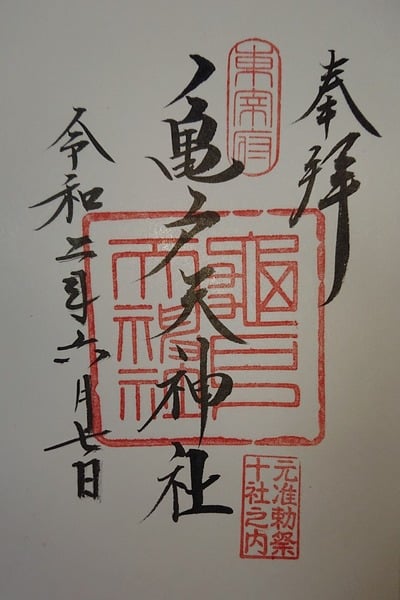 奉拝
東宰府
亀戸天神社
元准勅祭
十社之内
亀戸
天神社
令和二年六月七日